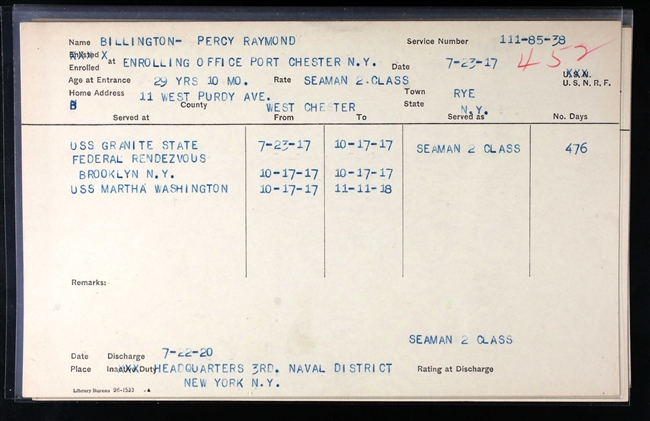 Name BILLINGTON- PERCY RAYMOND Service Number 111-85-38
Enrolled at ENROLLING OFFICE PORT CHESTER N.Y. Date 7-23-17 452
Age at Entrance 29 YRS 10 MO. Rate SEAMAN 2.CLASS U.S.N.R.F.
Home Address 11 WEST PURDY AVE. Town RYE
County WEST CHESTER State N.Y.
Served at From To Served as No. Days
USS GRANITE STATE 7-23-17 10-17-17 SEAMAN 2 CLASS 476
FEDERAL RENDEZVOUS
BROOKLYN N.Y. 10-17-17 10-17-17
USS MARTHA WASHINGTON 10-17-17 11-11-18
Remarks:
SEAMAN 2 CLASS
Date Discharge 7-22-20
Place Inactive Duty HEADQUARTERS 3RD. NAVAL DISTRICT Rating at Discharge
NEW YORK N.Y.
Library Bureau 26-1521